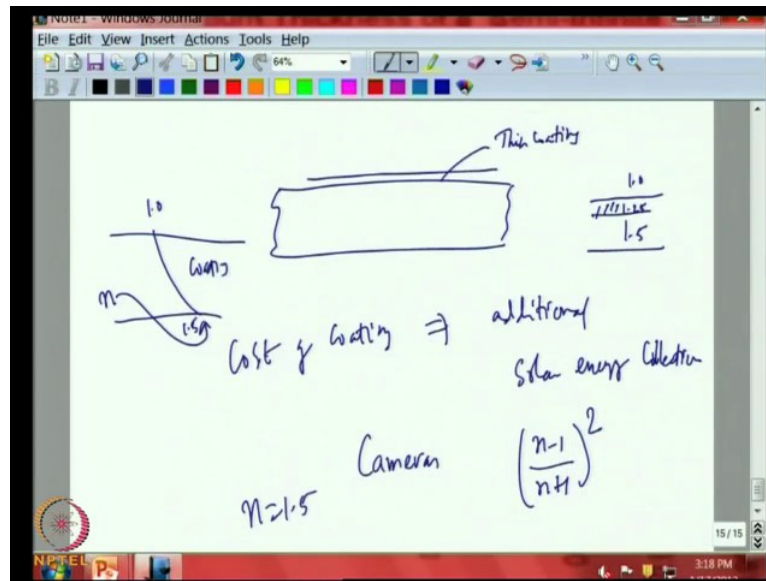 Note1 - Windows Journal
File Edit View Insert Actions Tools Help
64%
B I
Thin coating
1.0
1.0
1.25
1.5
coating
n
1.5
Cost of coating ⇒ additional
Solar energy Collection
Cameras
(n-1/n+1)²
n=1.5
15/15
NPTEL
3:18 PM